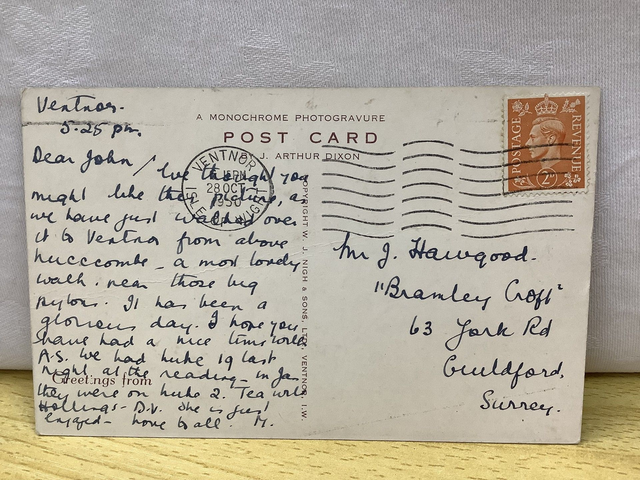 Ventnor.
5.25 pm.
A MONOCHROME PHOTOGRAVURE
POST CARD
J. ARTHUR DIXON
Dear John / We thought you
might like this picture, as
we have just walked over
it to Ventnor from above
Luccombe - a most lovely
walk. near those big
pylons. It has been a
glorious day. I hope you
have had a nice time
P.S. We had Luke 19 last
night at the reading - in Jan
they were on Luke 2. Tea with
Hollings - D.V. She is just
engaged - love to all. M.
Greetings from
VENTNOR
28 OCT
1950
ISLE OF WIGHT
COPYRIGHT W. J. NIGH & SONS, LTD., VENTNOR, I.W.
POSTAGE
REVENUE
2D
Mr J. Hawgood.
"Bramley Croft"
63 York Rd
Guildford.
Surrey.